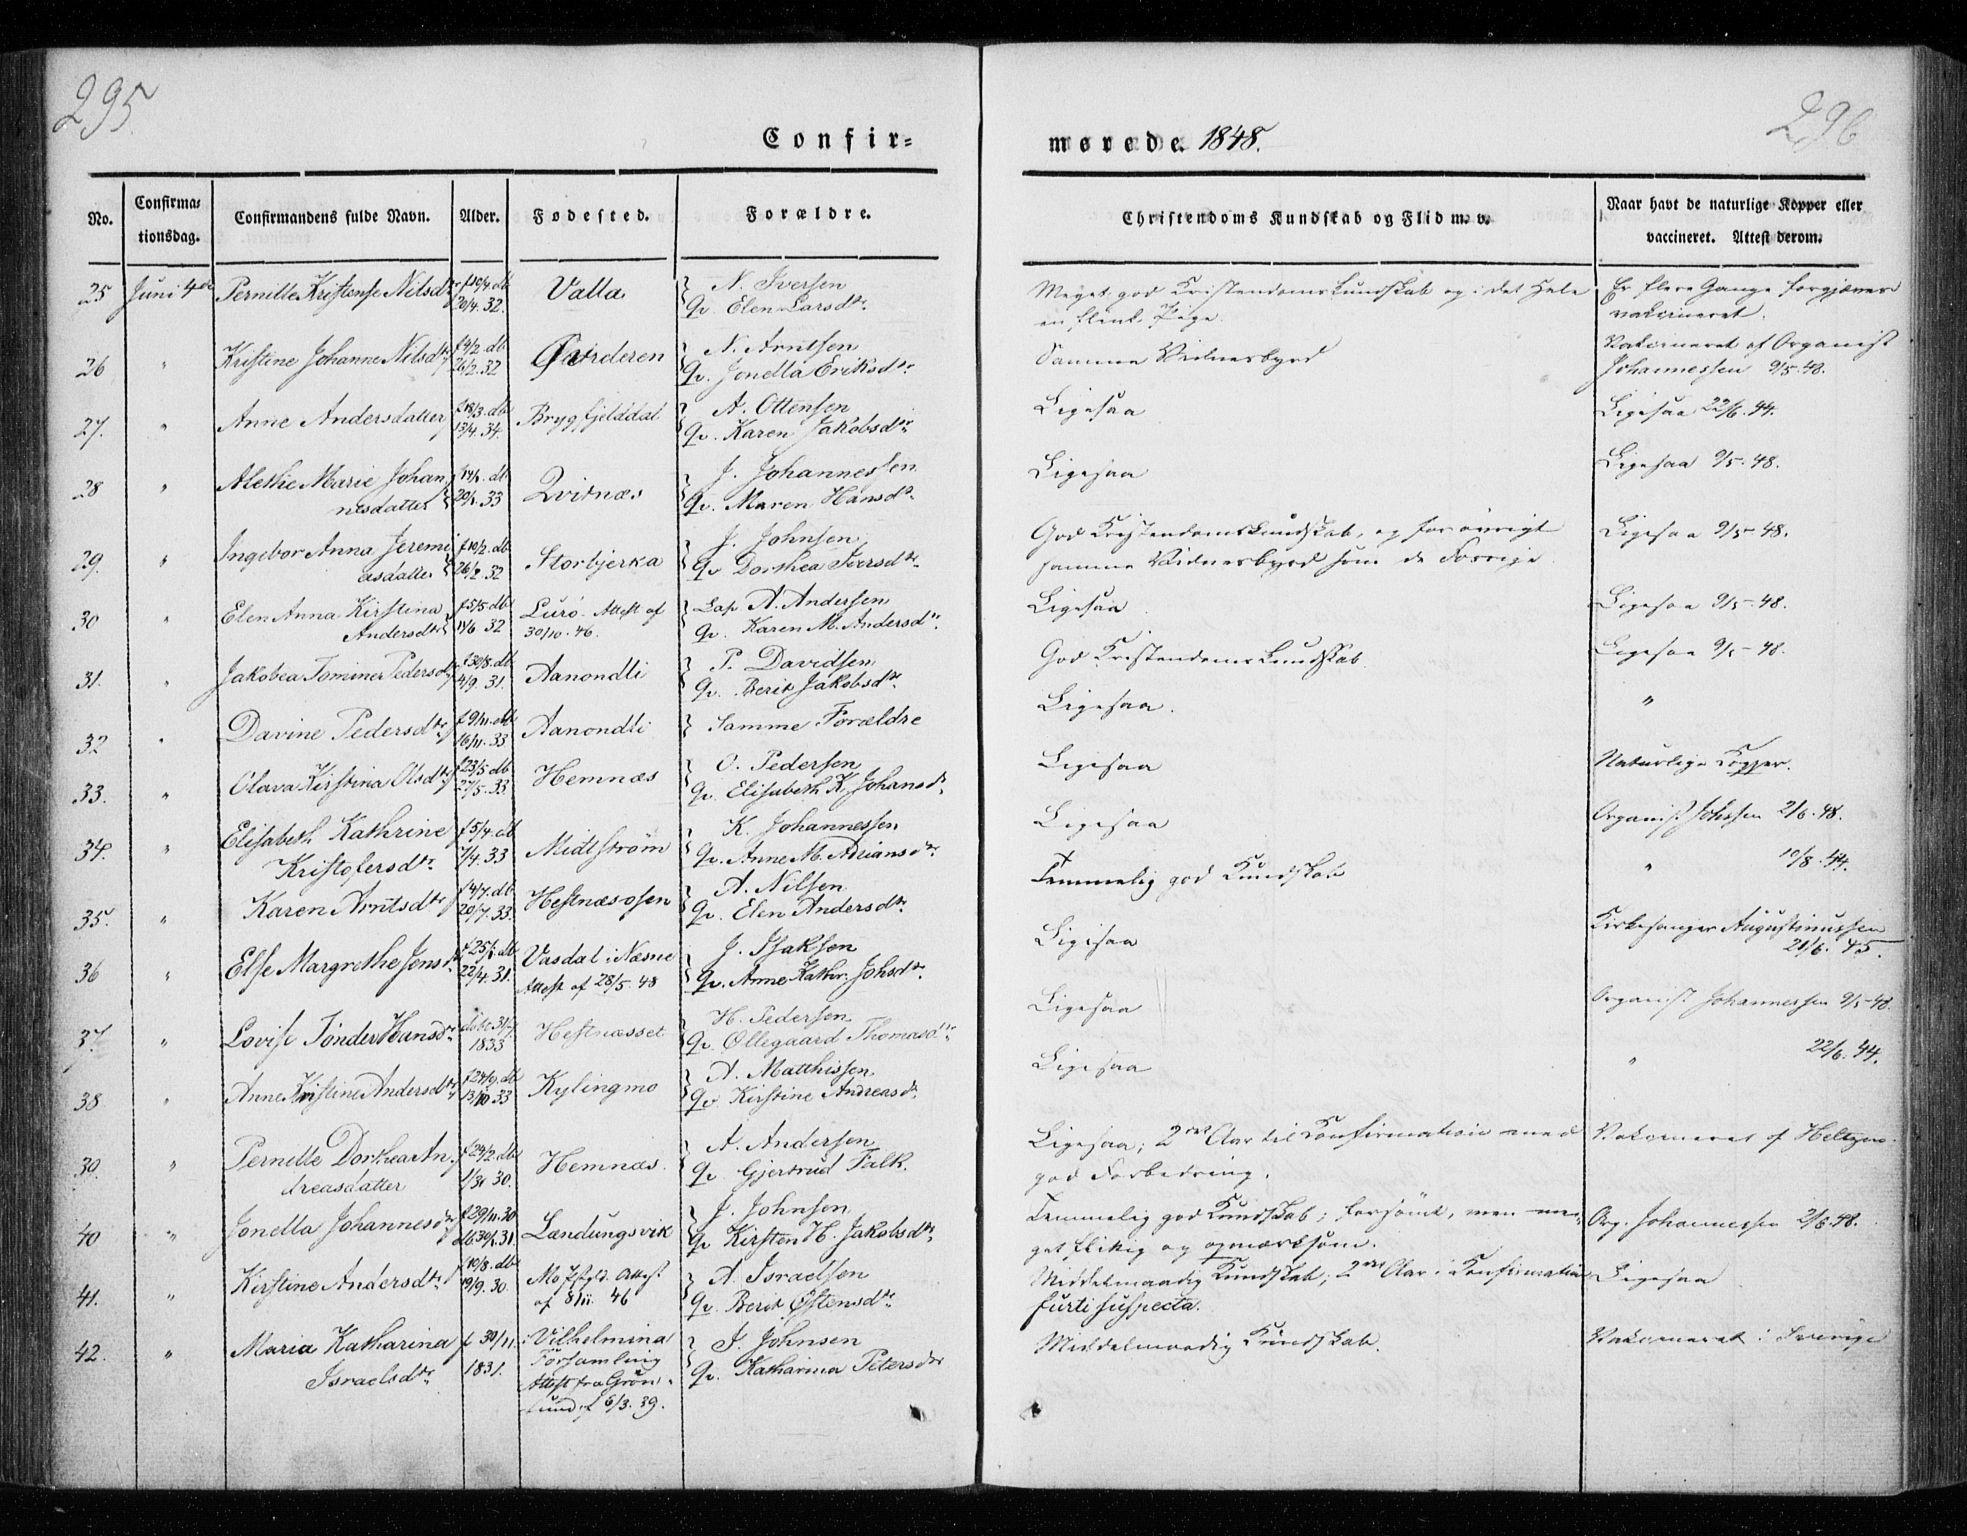 295
296
Confir-
mørede 1848.
No.
Confirma-
tionsdag.
Confirmandens fulde Navn.
Alder.
Fødested.
Forældre.
Christendoms Kundskab og Flid m. v.
Naar havt de naturlige Kopper eller
vaccineret. Attest derom.
25 Juni 4de Pernille Kristense Nilsdtr f 10/4. db 20/4. 32. Valla N. Iversen
Qv. Elen Larsdtr.
Meget god Kristendomskundskab og i det Hele
en flink Pige.
Er flere Gange forgjæves
vakcineret.
26 " Kristine Johanne Nilsdtr f 4/2. db 26/2. 32 N. Arntsen
Qv. Jonetta Eriksdtr.
Samme Vidnesbyrd
Vakcineret af Organist
Johannessen 9/5. 48.
27. " Anne Andersdatter f 18/3. db 13/4. 34. Brygfjelddal A. Ottensen
Qv. Karen Jakobsdtr
Ligesaa
Ligesaa 22/6. 44.
28 " Alethe Marie Johan
nesdatter 20/1. 33 Qvitnæs J. Johannessen
Qv. Maren Hansdtr.
Ligesaa
Ligesaa 9/5. 48.
29. " Ingebor Anna Jeremi
asdatter f 10/2. db 26/2. 32 Storbjerka J. Johnsen
Qv Dorthea Iversdtr.
God Kristendomskundskab, og for øvrigt
samme Vidnesbyrd som de Forrige.
Ligesaa 9/5 - 48.
30 " Elen Anna Kirstina
Andersdtr f 5/5. db 11/6 32 Lurö. Attest af
30/10. 46.
Lap A. Andersen
Qv. Karen M. Andersdtr.
Ligesaa
Ligesaa 9/5 - 48.
31. " Jakobea Tomine Pedersdtr f 30/8. db 4/9. 31. Aanondli P. Davidsen
Qv. Berit Jakobsdtr.
God Kristendomskundskab
Ligesaa 9/5 - 48.
32 " Davine Pedersdtr. f 9/11. db 16/11. 33 Aanondli Samme Forældre
Ligesaa.
"
33. " Olava Kirstina Olsdtr f 23/5 db 27/5. 33 Hemnæs O. Pedersen
Qv. Elisabeth K. Johansdtr.
Ligesaa
Naturlige Kopper.
34. " Elisabeth Kathrine
Kristofersdtr. f 5/4. db 7/4. 33 Midtström K. Johannessen
Qv. Anne M. Adriansdtr.
Ligesaa
Organist Johssen 2/6. 48.
35. " Karen Arntsdtr f 4/7. db 20/7. 33. Hestnæsosen A. Nilsen
Qv. Elen Andersdtr.
Temmelig god Kundskab
" 10/8. 44.
36 " Else Margrethe Jensdtr 22/4. 31. Vasdal i Næsne
Attest af 28/5. 48
J. Isaksen
Qv. Anne Kathr. Johsdtr.
Ligesaa
Kirkesanger Augustinussen
21/6. 45.
37. " Lovise Tønder Hansdtr döbt 31/7 1833 Hestnæsset H. Pedersen
Qv. Ollegaard Thomasdtr.
Ligesaa
Organist Johannessen 9/5 - 48.
38 " Anne Kristine Andersdtr 13/10 33 Kylingmo A. Matthissen
Qv Kirstine Andreasdtr.
Ligesaa
" 22/6. 44.
39. " Pernille Dorthea An
dreasdatter f 24/2. db 1/3 30. Hemnæs. A. Andersen
Qv Gjertrud Falk.
Ligesaa; 2det Aar til Konfirmation med
god Forbedring.
Vakcineret af
40 " Jonetta Johannesdtr f 29/11. 30 db 30/1. 31. Lændungsvik J. Johnsen
Qv Kirsten H. Jakobsdtr.
Temmelig god Kundskab; forsömt, men me-
get flittig og opmærksom.
Org. Johannessen 2/6. 48.
41. " Kirstine Andersdtr. f 10/8. db 19/9. 30 Mo Attest
af 8/11. 46
A. Israelsen
Qv. Berit Östensdtr.
Middelmaadig Kundskab; 2det Aar i Konfirmation
furti suspecta.
Ligesaa
42. " Maria Katharina
Israelsdtr. f 30/11. 1831. i Vilhelmina
Forsamling
Attest fra Grön-
lund af 6/3. 39.
I. Johnsen
Qv. Katharina Petersdtr
Middelmaadig Kundskab.
Vakcineret i Sverige